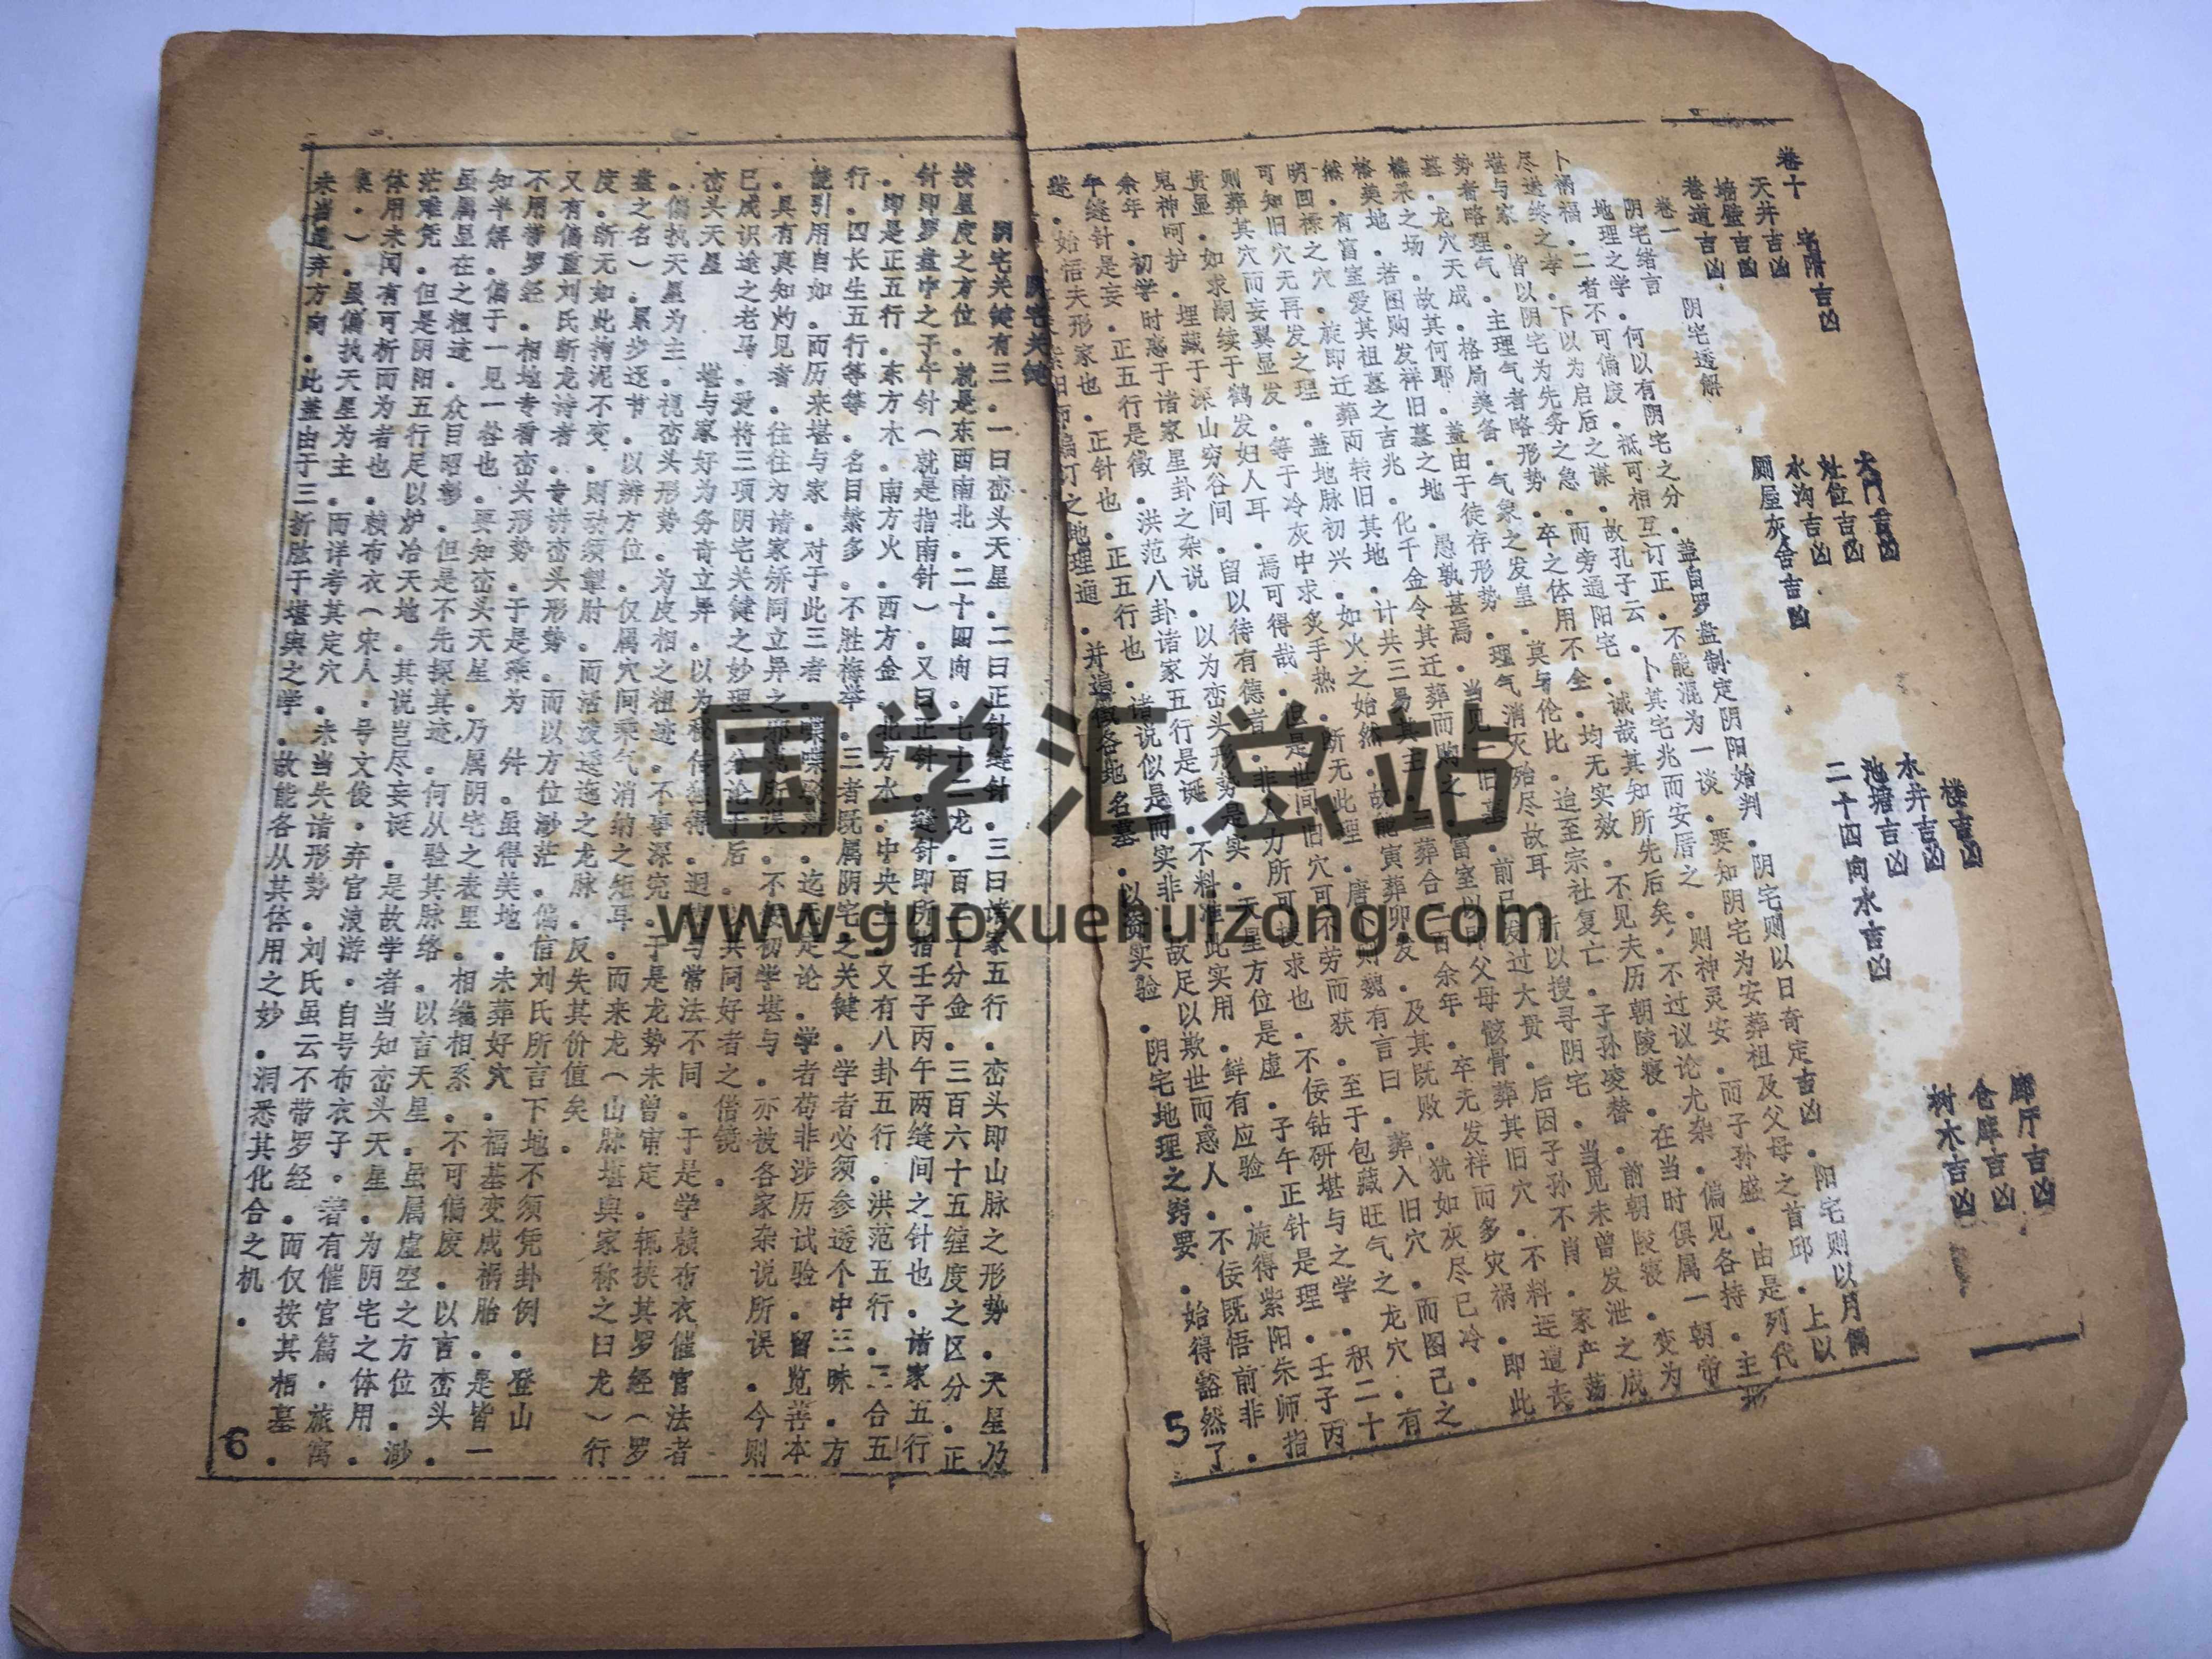 卷十
宅隋吉凶
大门吉凶
楼吉凶
廊厅吉凶
天井吉凶
灶位吉凶
水井吉凶
仓库吉凶
墙壁吉凶
水沟吉凶
池塘吉凶
树木吉凶
巷道吉凶
厕屋灰舍吉凶
二十四向水吉凶
卷一
阴宅透解
阴宅绪言
地理之学．何以有阴宅之分．盖自罗盘制定阴阳始判．阴宅则以日奇定吉凶．阳宅则以月偶
卜祸福．二者不可偏废．祗可相互订正．不能混为一谈．要知阴宅为安葬祖及父母之首邱．上以
尽送终之孝．下以为启后之谋．故孔子云．卜其宅兆而安厝之．则神灵安．而子孙盛．由是列代
堪与家．皆以阴宅为先务之急．而旁通阳宅．诚哉其知所先后矣．不过议论尤杂．偏见各持．主形
势者略理气．主理气者略形势．卒之体用不全．均无实效．不见夫历朝陵寝．在当时俱属一朝帝
墓．龙穴天成．格局美备．气象之发皇．莫与伦比．迨至宗社复亡．子孙凌替．前朝陵寝．变为
樵采之场．故其何耶．盖由于徒存形势．理气消灭殆尽故耳．所以搜寻阴宅．当见未曾发泄之成
格美地．若图购发祥旧墓之地．愚孰甚焉．当见一旧墓．前已发过大贵．后因子孙不肖．家产荡
然．有富室爱其祖墓之吉兆．化千金令其迁葬而购之．富室以即父母骸骨葬其旧穴．不料连遭丧
明回禄之穴．旋即迁葬而转旧其地．计共三易其主．三葬合二百余年．卒无发祥而多灾祸．即此
可知旧穴无再发之理．盖地脉初兴．如火之始然．故能寅葬卯发．及其既败．犹如灰尽已冷．
则葬其穴而妄翼显发．等于冷灰中求炙手热．断无此理．唐卜则魏有言曰．葬入旧穴．而图己之
贵显．如求嗣续于鹤发妇人耳．焉可得哉．但是世间旧穴可不劳而获．至于包藏旺气之龙穴．有
鬼神呵护．埋藏于深山穷谷间．留以待有德者．非人力所可投求也．不佞钻研堪与之学．积二十
余年．初学时惑于诸家星卦之杂说．以为峦头形势是实．天星方位是虚．子午正针是理．壬子丙
午缝针是妄．正五行是徵．洪范八卦诸家五行是诞．不料准此实用．鲜有应验．旋得紫阳朱师指
迷．始悟夫形家也．正针也．正五行也．诸说似是而实非．故足以欺世而惑人．不佞既悟前非．
编订之地理通．并遍徵各地名墓．以资实验．阴宅地理之窍要．始得豁然了
5
阴宅关键
阴宅关键有三．一曰峦头天星．二曰正针缝针．三曰诸家五行．峦头即山脉之形势．天星乃
按星度之方位．就是东西南北．二十四向．七十二龙．百二十分金．三百六十五缠度之区分．正
针即罗盘中之子午针（就是指南针）．又曰正针．缝针即所指壬子丙午两缝间之针也．诸家五行
．即是正五行．东方木．南方火．西方金．北方水．中央土．又有八卦五行．洪范五行．三合五
行．四长生五行等等．名目繁多．不胜梅举．三者既属阴宅之关键．学者必须参透个中三昧．方
能引用自如．而历来堪与家．对于此三者．喋喋致辩．迄无定论．学者苟非涉历试验．留览善本
．具有真知灼见者．往往为诸家矫同立异之邪说所误．不使初学堪与．亦被各家杂说所误．今则
已成识途之老马．爱将三项阴宅关键之妙理．分论于后．以共同好者之借镜．
峦头天星
堪与家好为务奇立异．以为秘传独得．迥然与常法不同．于是学赖布衣催官法者
．偏执天星为主．视峦头形势．为皮相之粗迹．不事深究．于是龙势未曾审定．辄挟其罗经（罗
盘之名）．累步逐节．以辨方位．仅属穴间乘气消纳之矩耳．而来龙（山脉堪舆家称之曰龙）行
度．断无如此拘泥不变．则动须掣肘．而活泼逶迤之龙脉．反失其价值矣．
又有偏重刘氏断龙诗者．专讲峦头形势．而以方位渺茫．偏信刘氏所言下地不须凭卦例．登山
不用带罗经．相地专看峦头形势．于是乘为　舛．虽得美地．未葬好穴．福基变成祸胎．是皆一
知半解．偏于一见一咎也．要知峦头天星．乃属阴宅之表里．相维相系．不可偏废．以言峦头．
虽属显在之粗迹．众目昭彰．但是不先探其迹．何从验其脉络．以言天星．虽属虚空之方位．渺
茫难凭．但是阴阳五行足以炉冶天地．其说岂尽妄诞．是故学者当知峦头天星．为阴宅之体用．
体用未闻有可析而为者也．赖布衣（宋人．号文俊．弃官浪游．自号布衣子．若有催官篇．旅寓
集．）．虽偏执天星为主．而详考其定穴．未当失诸形势．刘氏虽云不带罗经．而仅按其相墓．
未当遗弃方向．此盖由于三折肱于堪舆之学．故能各从其体用之妙．洞悉其化合之机．
6
国学汇总站
www.guoxuehuizong.com